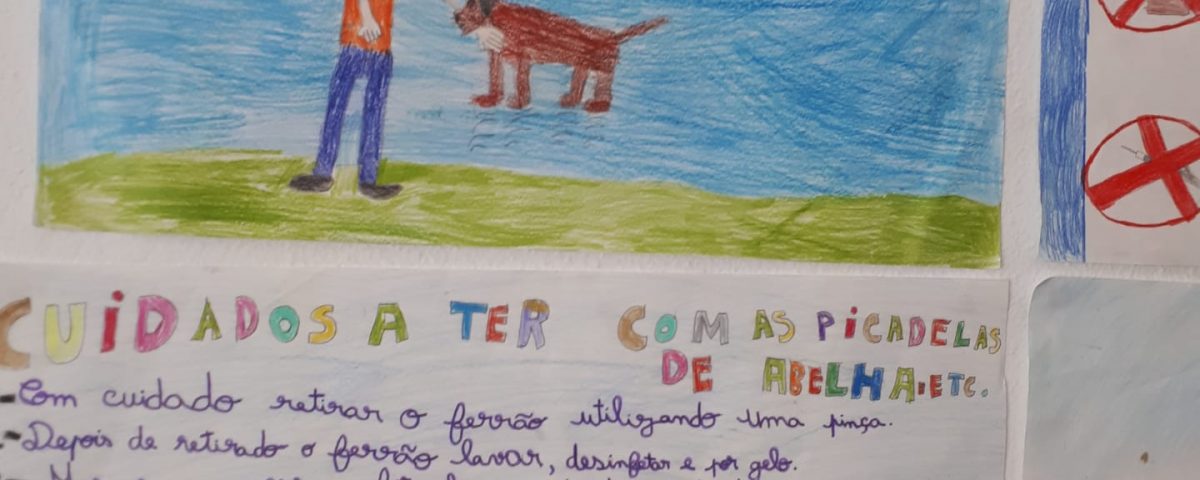 CUIDADOS A TER COM AS PICADELAS
DE ABELHA.ETC.
-Com cuidado retirar o ferrão utilizando uma pinça.
-Depois de retirado o ferrão lavar, desinfetar e por gelo.